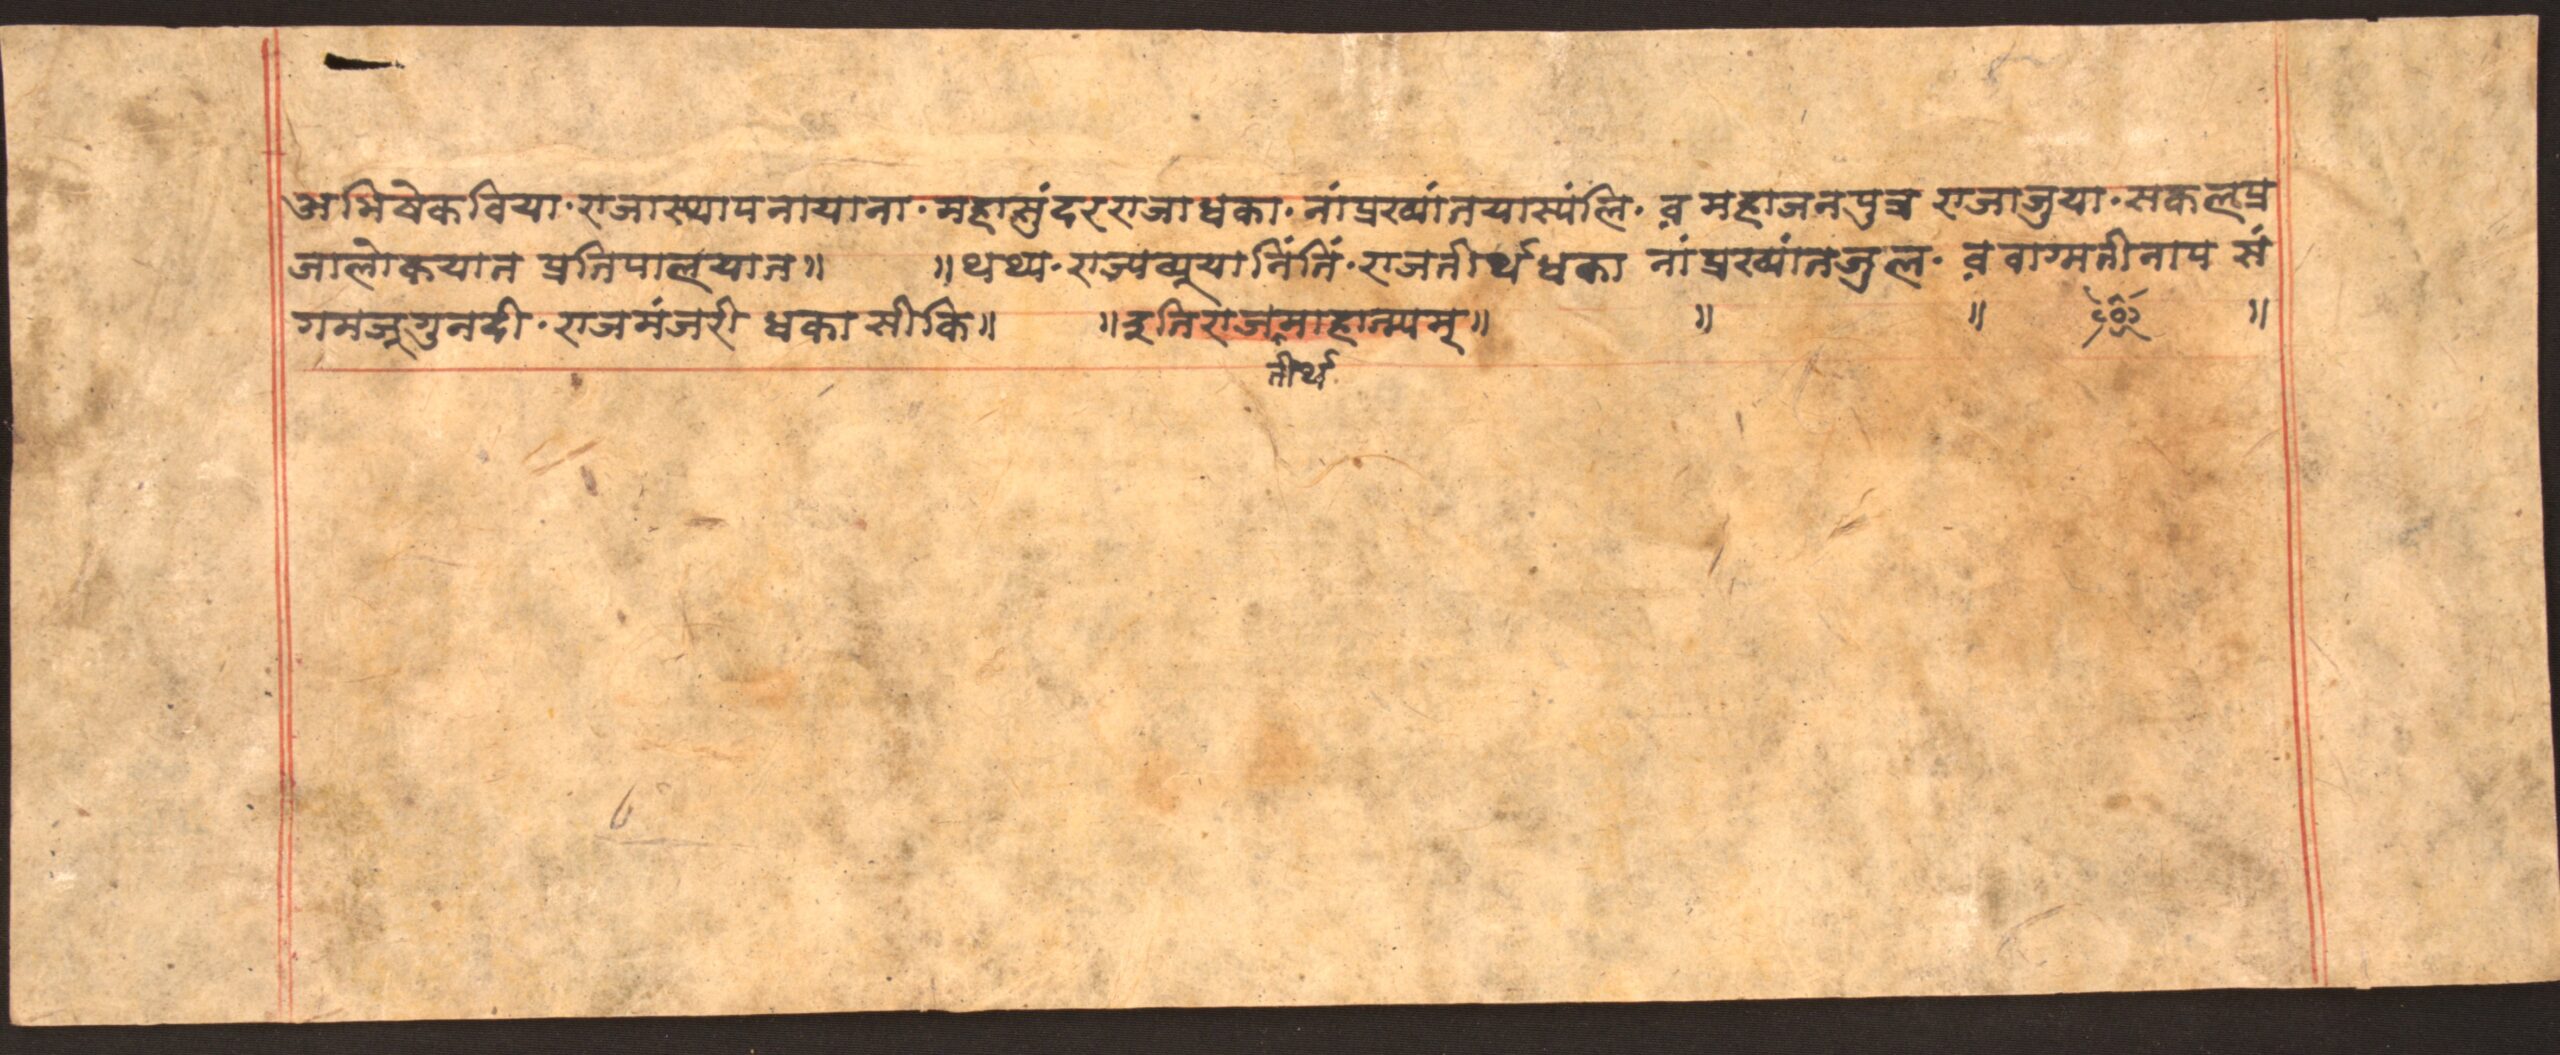 अभिषेकविया·राजास्थापनायाना·महासुंदरराजाधका·नांप्रख्यांतयास्यंलि·व़महाजनपुत्र राजाजुया·सकलप्र
जालोकयात प्रतिपालयात॥ ॥थथ्य·राज्यव्यूयानिंतिं·राजतीर्थधका नांप्रख्यांतजुल·व़वाग्मतीनाप सं
गमजूगुनदी·राजमंजरी धकासीकि॥ ॥इतिराजमाहात्म्यम्॥ ॥ ॥ ॥
तीर्थ